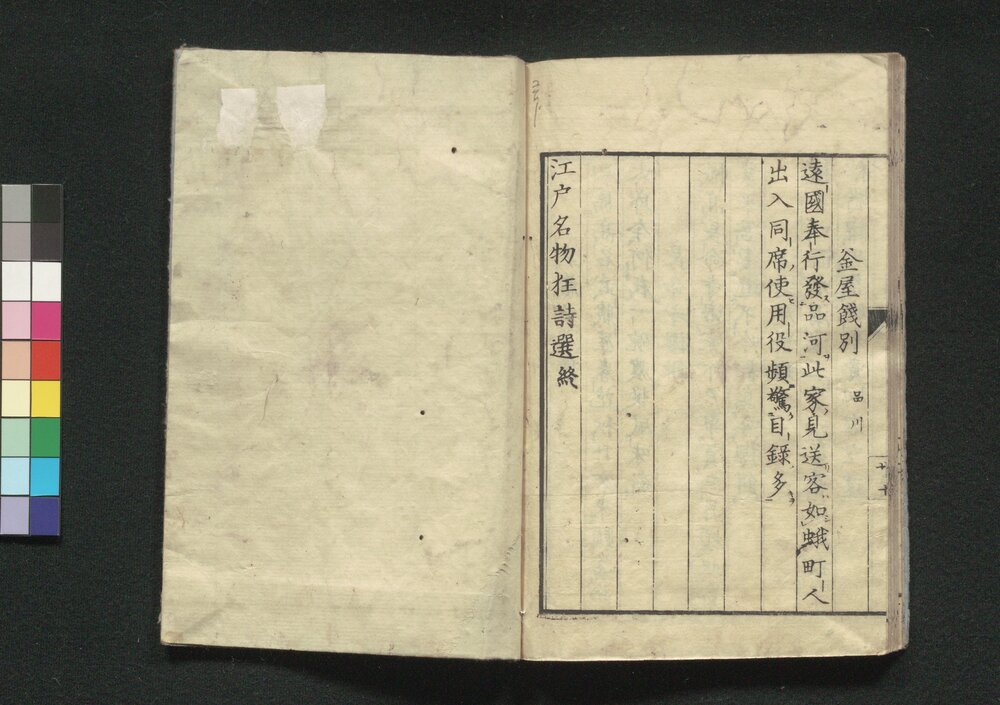 釜屋餞別 品川
遠國奉行發品河此家見送客如蛾町人
出入同席使用役頻驚目錄多
江戸名物狂詩選終